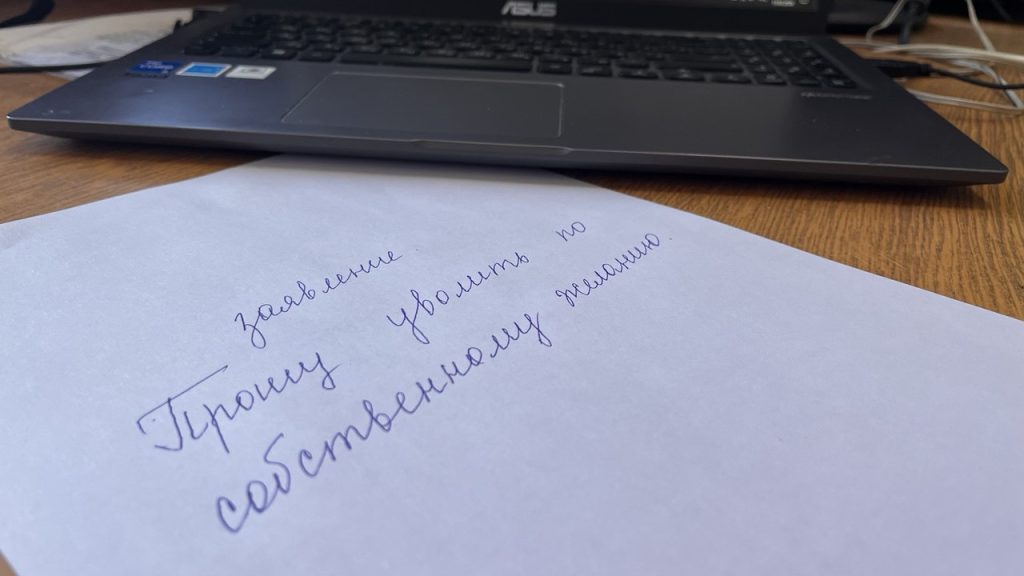 ASUS
заявление
Прошу уволить по
собственному желанию.